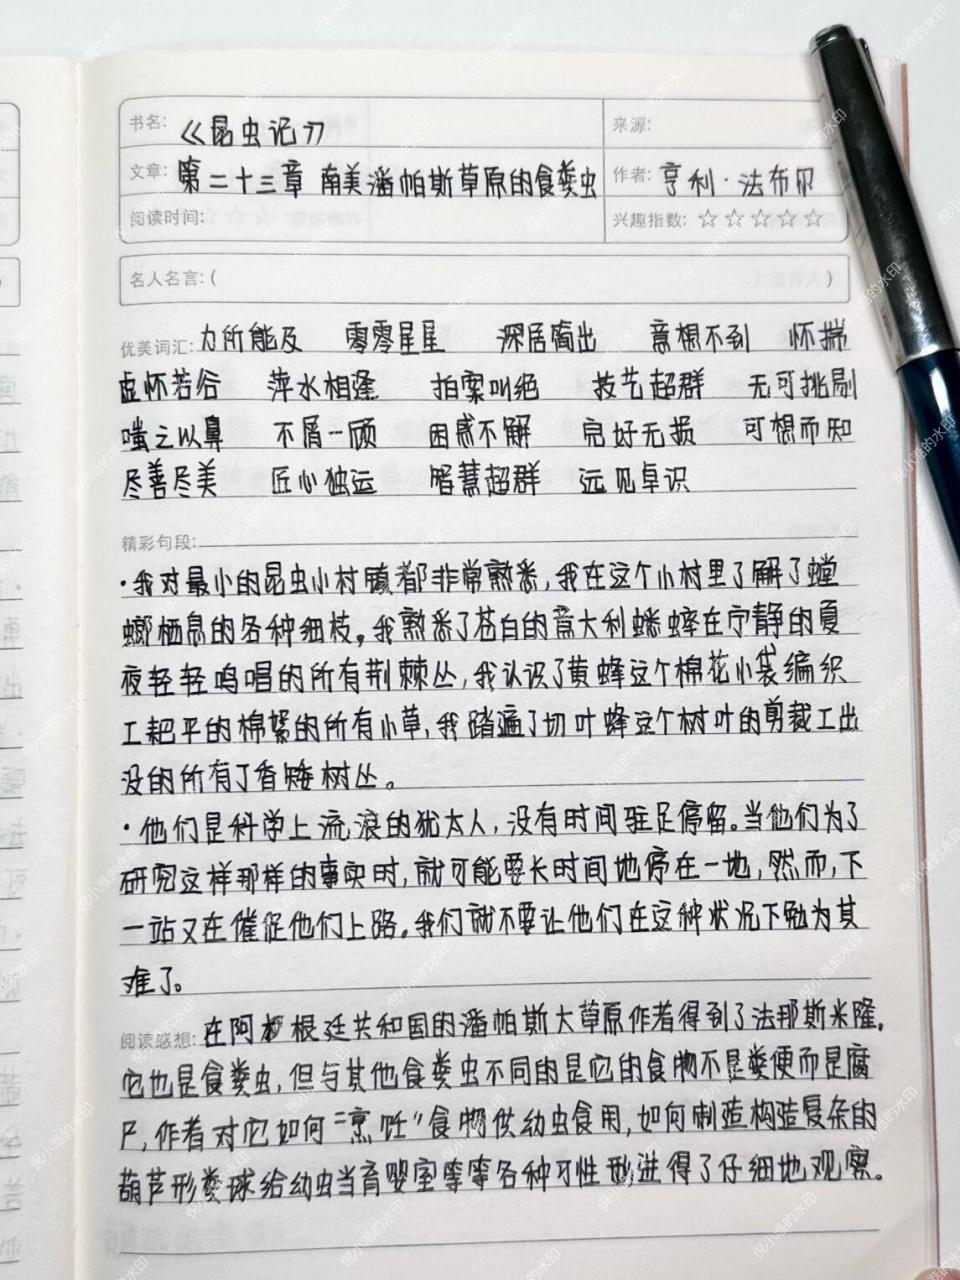 书名: 《昆虫记》 来源:
文章: 第二十三章 南美潘帕斯草原的食粪虫 作者: 亨利·法布尔
阅读时间: 兴趣指数: ☆☆☆☆☆
名人名言: ( )
优美词汇: 力所能及 零零星星 深居简出 意想不到 怀揣
虚怀若谷 萍水相逢 拍案叫绝 技艺超群 无可挑剔
嗤之以鼻 不屑一顾 困惑不解 完好无损 可想而知
尽善尽美 匠心独运 智慧超群 远见卓识
精彩句段:
·我对最小的昆虫小村镇都非常熟悉,我在这个小村里了解了螳
螂栖息的各种细枝。我熟悉了苍白的意大利蟋蟀在宁静的夏
夜轻轻鸣唱的所有荆棘丛,我认识了黄蜂这个棉花小袋编织
工耙平的棉絮的所有小草,我踏遍了切叶蜂这个树叶的剪裁工出
没的所有丁香矮树丛。
·他们是科学上流浪的犹太人,没有时间驻足停留。当他们为了
研究这样那样的事实时,就可能要长时间地停在一地,然而,下
一站又在催促他们上路。我们就不要让他们在这种状况下勉为其
难了。
阅读感想: 在阿根廷共和国的潘帕斯大草原作者得到了法那斯米隆。
它也是食粪虫,但与其他食粪虫不同的是它的食物不是粪便而是腐
尸,作者对它如何“烹饪”食物供幼虫食用,如何制造构造复杂的
葫芦形粪球给幼虫当育婴室等等各种习性都进得了仔细地观察。
倪小浩的水印